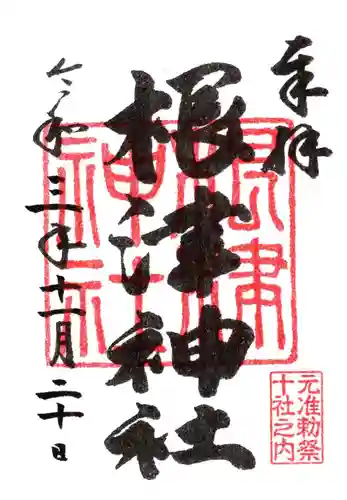 奉拝
根津神社
令和三年十一月二十日
根津
神社
元准勅祭
十社之内